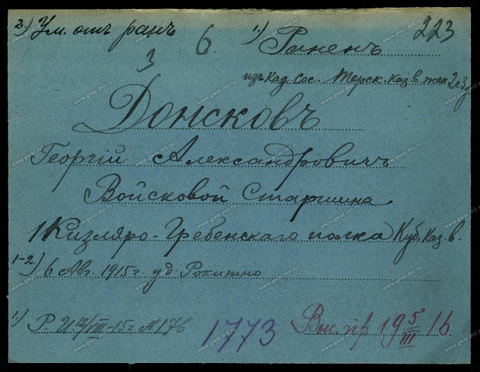 2) Ум. отъ ранъ 6. 1) Раненъ 223
3
изъ Кад. Сос. Терск. каз. в.
Донсковъ
Георгій Александровичъ
Войсковой Старшина
1 Кизляро-Гребенскаго полка Куб. Каз. в
1-2) 6 Авг. 1915 г. уд. Рокитно
1) Р. И. VIII-15 г. № 176 1773 Вн. пр. 19 5/III 16